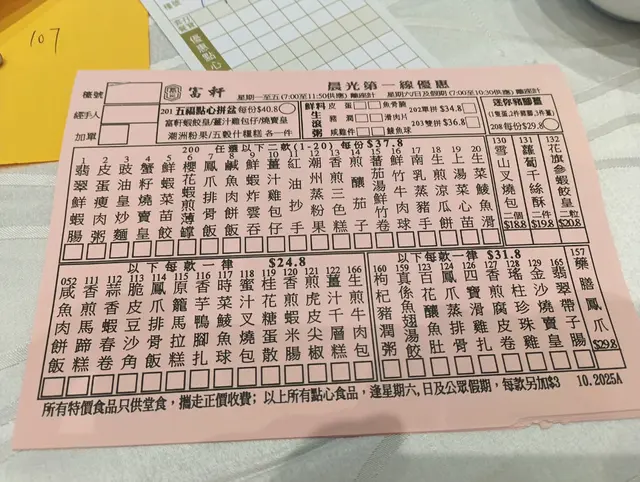 107
優惠點心
檯號
經手人
加單
富軒
晨光第一線優惠
星期一至五(7:00至11:50供應) 離座計 星期六日及假期 (7:00至10:30供應) 離座計
201 五福點心拼盆 每份$40.8
富軒蝦餃皇/薑汁雞包仔/燒賣皇
潮洲粉果/五穀什糧糕 各一件
鮮料 皮蛋 魚骨腩
生 豬潤 滑肉片
滾 鯪魚球
粥 咸雞件
202單拼 $34.8
203雙拼 $36.8
迷你豬腳薑
208 每份$29.8
200 任選以下二款(1-20) 每份$37.8
1 翡翠鮮蝦腸
2 皮蛋瘦肉粥
3 豉油皇炒麵
4 蟹籽燒賣皇
5 鮮蝦菜苗餃
7 鳳爪排骨飯
8 鮮魚腩飯
9 鮮蝦炸雲吞
10 薑汁包仔
11 紅油抄手
12 潮州蒸粉果
13 香煎三色糕
14 煎釀茄子
15 蕃茄湯鮮竹卷
16 鮮竹牛肉球
17 南乳蒸豬手
18 生炒涼瓜餅
19 上湯菜苗
20 生菜鯪魚滑
130 雪山叉燒包 二個 $18.8
131 蘿蔔千絲酥 二件 $19.8
132 花旗參蝦餃皇 二粒 $20.8
以下每款一律 $24.8
052 咸魚肉餅飯
111 香煎馬蹄糕
112 蒜蝦春卷
113 脆皮豆沙角
114 鳳爪排骨飯
115 原籠馬拉糕
116 香芋鴨腳扎
117 時菜鯪魚球
118 蜜汁叉燒包
119 桂花糖蛋散
120 香煎蝦米腸
121 虎皮尖椒
122 薑汁千層糕
166 生煎牛肉包
以下每款一律 $31.8
160 枸杞豬潤粥
159 真係魚翅湯餃
123 百花釀魚肚
124 鳳爪蒸排骨
125 四寶滑雞扎
126 香煎腐皮卷
128 瑤柱珍珠雞
129 金沙燒賣皇
165 翡翠帶子腸
157 藥膳鳳爪 $29.8
所有特價食品只供堂食, 攜走正價收費; 以上所有點心食品, 逢星期六, 日及公眾假期, 每款另加$3
10.2025A